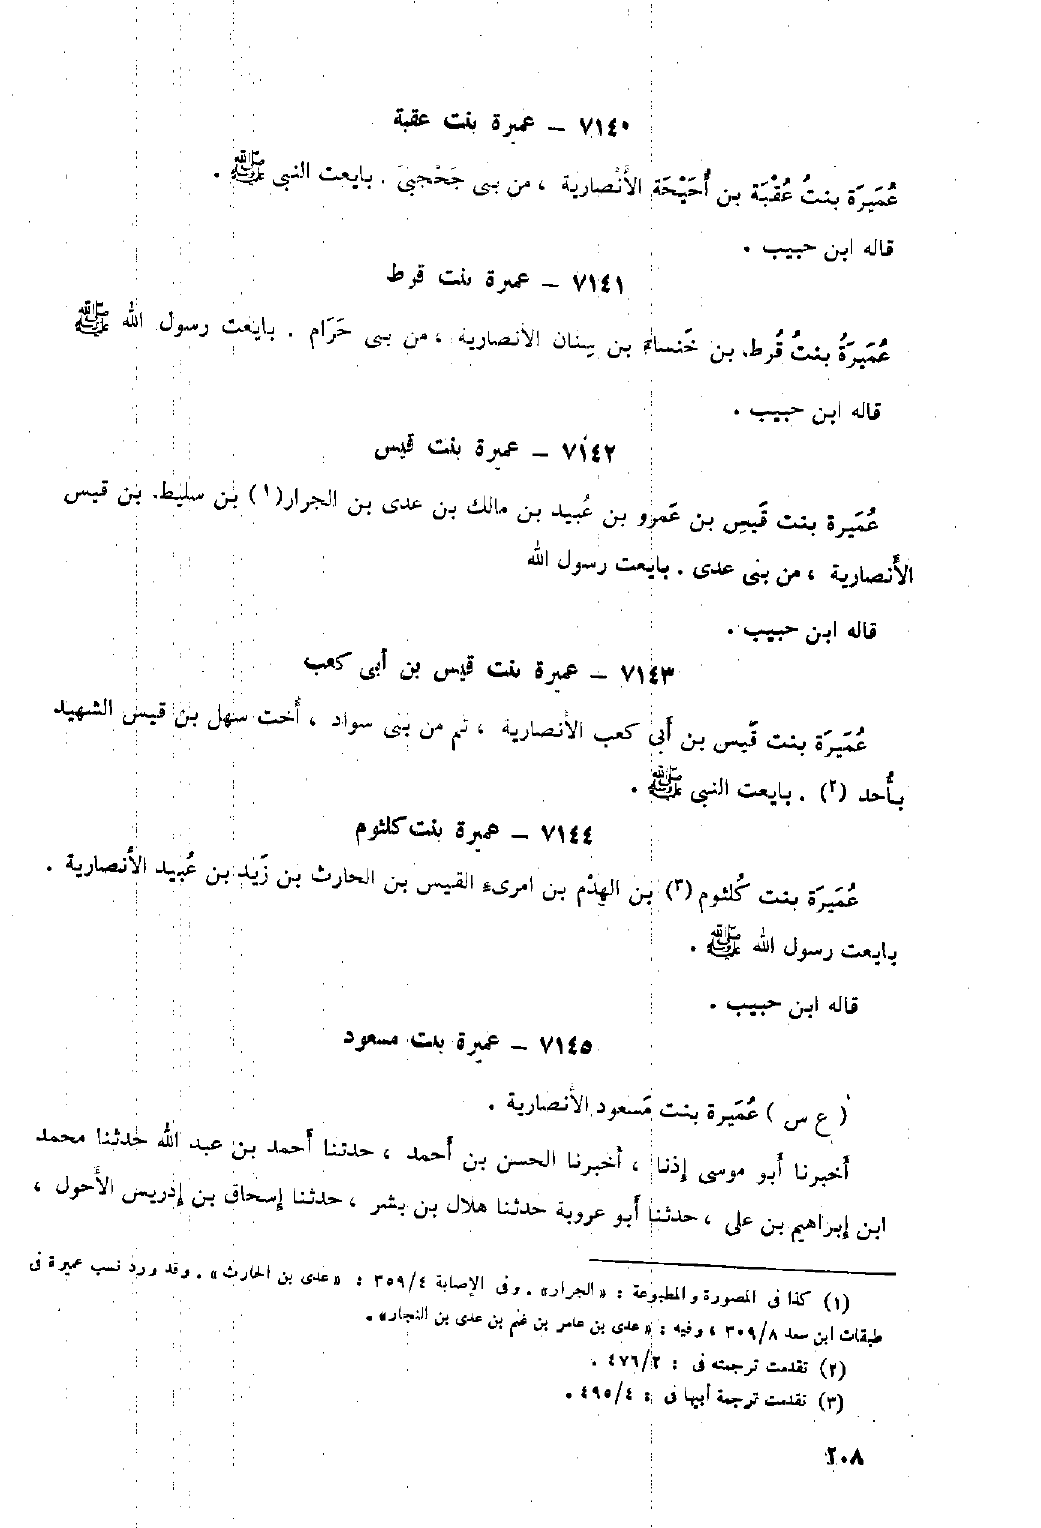 ٧١٤٠ – عميرة بنت عقبة
عُمَيرَة بنتُ عُقْبَة بن أُحَيْحَة الأَنْصارية ، من بنى جَحْجبىَ . بايعت النبى ﷺ .
قاله ابن حبيب .
٧١٤١ – عميرة بنت قرط
عُمَيرَةُ بنتُ قُرط. بن خَنساء بن سِنان الأنصارية ، من بنى حَرَام . بايعت رسول الله ﷺ
قاله ابن حبيب .
٧١٤٢ – عميرة بنت قيس
عُمَيرة بنت قَيس بن عَمرو بن عُبيد بن مالك بن عدى بن الجرار(١) بن سليط. بن قيس
الأَنصارية ، من بنى عدى . بايعت رسول الله
قاله ابن حبيب .
٧١٤٣ – عميرة بنت قيس بن أبى كعب
عُمَيرَة بنت قَيس بن أَبى كعب الأَنصارية ، ثم من بنى سواد ، أُخت سهل بن قيس الشهيد
بأُحد (٢) . بايعت النبى ﷺ .
٧١٤٤ – عميرة بنت كلثوم
عُمَيرَة بنت كُلثوم (٣) بن الهِدْم بن امرىء القيس بن الحارث بن زَيد بن عُبيد الأَنصارية .
بايعت رسول الله ﷺ .
قاله ابن حبيب .
٧١٤٥ – عميرة بنت مسعود
( ع س ) عُمَيرة بنت مَسعود الأَنصارية .
أَخبرنا أَبو موسى إِذنا ، أَخبرنا الحسن بن أَحمد ، حدثنا أَحمد بن عبد الله حدثنا محمد
ابن إِبراهيم بن على ، حدثنا أَبو عروبة حدثنا هلال بن بشر ، حدثنا إِسحاق بن إِدريس الأَحول ،
(١) كذا فى المصورة والمطبوعة : «الجرار» . وفى الإصابة ٣٥٩/٤ : «عدى بن الحارث» . وقد ورد نسب عميرة فى
طبقات ابن سعد ٣٠٩/٨ ، وفيه : «عدى بن عامر بن غنم بن عدى بن النجار» .
(٢) تقدمت ترجمته فى : ٤٧٦/٢ .
(٣) تقدمت ترجمة أبيها فى : ٤٩٥/٤ .
٢٠٨